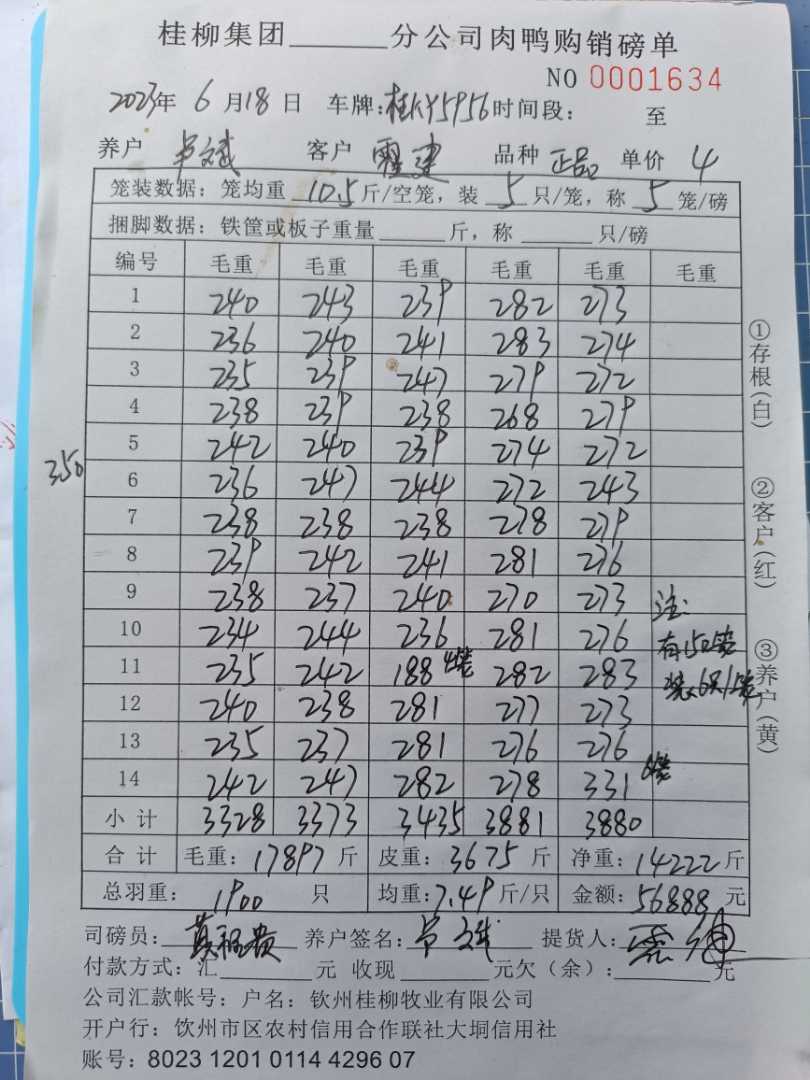 桂柳集团______分公司肉鸭购销磅单
NO 0001634
2023年 6 月 18 日 车牌:桂KY5956 时间段: 至
养户 客户 品种 正品 单价 4
笼装数据:笼均重 10.5 斤/空笼,装 5 只/笼,称 5 笼/磅
捆脚数据:铁筐或板子重量______斤,称______只/磅
编号 毛重 毛重 毛重 毛重 毛重 毛重
1 240 243 239 282 273
2 236 240 241 283 274
3 235 239 247 279 272
4 238 239 238 268 279
5 242 240 239 274 272
350
6 236 247 244 272 243
7 238 238 238 278 279
8 239 242 241 281 276
9 238 237 240 270 273
10 234 244 236 281 276
11 235 242 188 4笼 282 283
12 240 238 281 277 273
13 235 237 281 276 276
14 242 247 282 278 331 6笼
注:
有150笼
装6只/笼
小计 3328 3373 3435 3881 3880
合计 毛重:17897 斤 皮重:3675 斤 净重:14222 斤
总羽重: 1900 只 均重:7.49 斤/只 金额:56888 元
司磅员: 养户签名: 提货人:
付款方式:汇______元 收现______元欠(余):______元
公司汇款帐号:户名:钦州桂柳牧业有限公司
开户行:饮州市区农村信用合作联社大垌信用社
账号:8023 1201 0114 4296 07
①存根(白)
②客户(红)
③养户(黄)